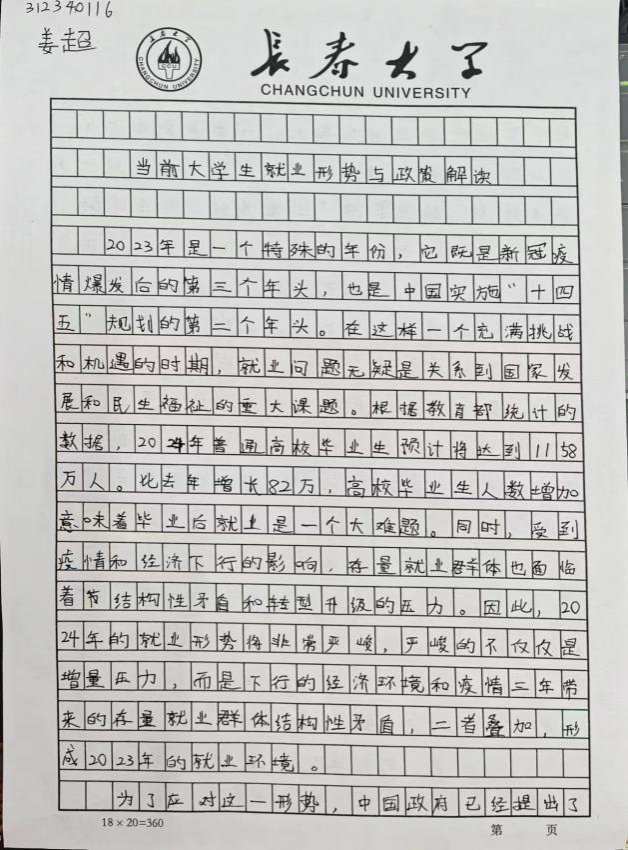 312340116
姜超
長春大学
CHANGCHUN UNIVERSITY
长春大学
CCU
CHANGCHUN UNIVERSITY
当前大学生就业形势与政策解读
2023年是一个特殊的年份，它既是新冠疫
情爆发后的第三个年头，也是中国实施“十四
五”规划的第二个年头。在这样一个充满挑战
和机遇的时期，就业问题无疑是关系到国家发
展和民生福祉的重大课题。根据教育部统计的
数据，2024年普通高校毕业生预计将达到1158
万人。比去年增长82万，高校毕业生人数增加
意味着毕业后就业是一个大难题。同时，受到
疫情和经济下行的影响，存量就业群体也面临
着节结构性矛盾和转型升级的压力。因此，20
24年的就业形势将非常严峻，严峻的不仅仅是
增量压力，而是下行的经济环境和疫情三年带
来的存量就业群体结构性矛盾，二者叠加，形
成2023年的就业环境。
为了应对这一形势，中国政府已经提出了
18×20=360
第 页